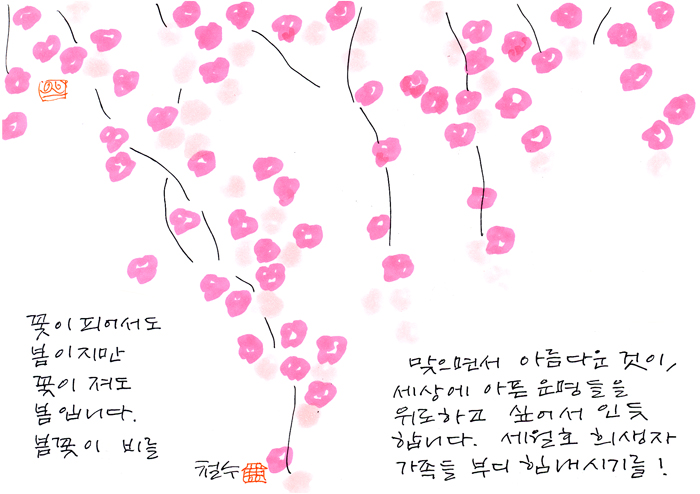 꽃이 피어서도
봄이지만
꽃이 져도
봄입니다.
봄꽃이 비를
맞으면서 아름다운 것이,
세상에 아픈 운명들을
위로하고 싶어서 인듯
합니다. 세월호 희생자
가족들 부디 힘내시기를!
철수